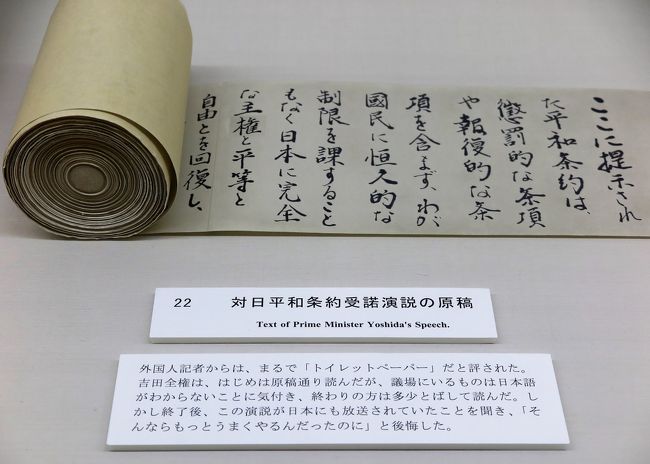 ここに提示され
た平和条約は、
懲罰的な条項
や報復的な条
項を含まず、わが
國民に恒久的な
制限を課すること
もなく日本に完全
な主権と平等と
自由とを回復し、
22 対日平和条約受諾演説の原稿
Text of Prime Minister Yoshida's Speech.
外国人記者からは、まるで「トイレットペーパー」だと評された。
吉田全権は、はじめは原稿通り読んだが、議場にいるものは日本語
がわからないことに気付き、終わりの方は多少とばして読んだ。し
かし終了後、この演説が日本にも放送されていたことを聞き、「そ
んならもっとうまくやるんだったのに」と後悔した。